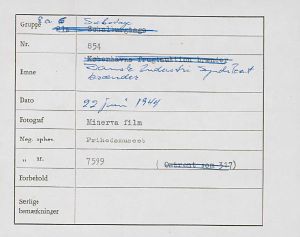 Gruppe 8 a 6 Sabotage
Nr. 854
Københavns
Emne Dansk Industri Syndikat
brænder
Dato 22 juni 1944
Fotograf Minerva film
Neg. opbev. Frihedsmuseet
„ nr. 7599 ( Omtrent som 317)
Forbehold
Særlige
bemærkninger